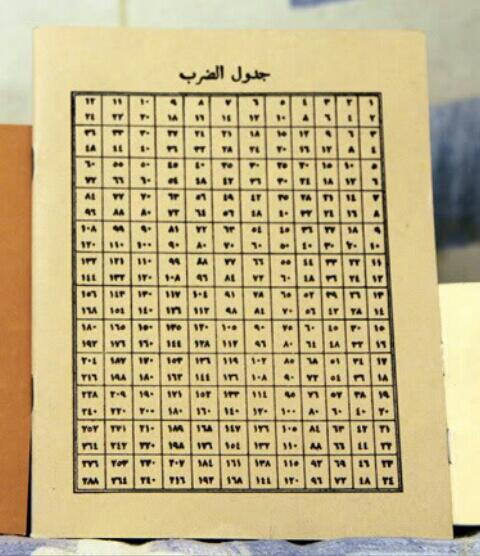 جدول الضرب
١ ٢ ٣ ٤ ٥ ٦ ٧ ٨ ٩ ١٠ ١١ ١٢
٢ ٤ ٦ ٨ ١٠ ١٢ ١٤ ١٦ ١٨ ٢٠ ٢٢ ٢٤
٣ ٦ ٩ ١٢ ١٥ ١٨ ٢١ ٢٤ ٢٧ ٣٠ ٣٣ ٣٦
٤ ٨ ١٢ ١٦ ٢٠ ٢٤ ٢٨ ٣٢ ٣٦ ٤٠ ٤٤ ٤٨
٥ ١٠ ١٥ ٢٠ ٢٥ ٣٠ ٣٥ ٤٠ ٤٥ ٥٠ ٥٥ ٦٠
٦ ١٢ ١٨ ٢٤ ٣٠ ٣٦ ٤٢ ٤٨ ٥٤ ٦٠ ٦٦ ٧٢
٧ ١٤ ٢١ ٢٨ ٣٥ ٤٢ ٤٩ ٥٦ ٦٣ ٧٠ ٧٧ ٨٤
٨ ١٦ ٢٤ ٣٢ ٤٠ ٤٨ ٥٦ ٦٤ ٧٢ ٨٠ ٨٨ ٩٦
٩ ١٨ ٢٧ ٣٦ ٤٥ ٥٤ ٦٣ ٧٢ ٨١ ٩٠ ٩٩ ١٠٨
١٠ ٢٠ ٣٠ ٤٠ ٥٠ ٦٠ ٧٠ ٨٠ ٩٠ ١٠٠ ١١٠ ١٢٠
١١ ٢٢ ٣٣ ٤٤ ٥٥ ٦٦ ٧٧ ٨٨ ٩٩ ١١٠ ١٢١ ١٣٢
١٢ ٢٤ ٣٦ ٤٨ ٦٠ ٧٢ ٨٤ ٩٦ ١٠٨ ١٢٠ ١٣٢ ١٤٤
١٣ ٢٦ ٣٩ ٥٢ ٦٥ ٧٨ ٩١ ١٠٤ ١١٧ ١٣٠ ١٤٣ ١٥٦
١٤ ٢٨ ٤٢ ٥٦ ٧٠ ٨٤ ٩٨ ١١٢ ١٢٦ ١٤٠ ١٥٤ ١٦٨
١٥ ٣٠ ٤٥ ٦٠ ٧٥ ٩٠ ١٠٥ ١٢٠ ١٣٥ ١٥٠ ١٦٥ ١٨٠
١٦ ٣٢ ٤٨ ٦٤ ٨٠ ٩٦ ١١٢ ١٢٨ ١٤٤ ١٦٠ ١٧٦ ١٩٢
١٧ ٣٤ ٥١ ٦٨ ٨٥ ١٠٢ ١١٩ ١٣٦ ١٥٣ ١٧٠ ١٨٧ ٢٠٤
١٨ ٣٦ ٥٤ ٧٢ ٩٠ ١٠٨ ١٢٦ ١٤٤ ١٦٢ ١٨٠ ١٩٨ ٢١٦
١٩ ٣٨ ٥٧ ٧٦ ٩٥ ١١٤ ١٣٣ ١٥٢ ١٧١ ١٩٠ ٢٠٩ ٢٢٨
٢٠ ٤٠ ٦٠ ٨٠ ١٠٠ ١٢٠ ١٤٠ ١٦٠ ١٨٠ ٢٠٠ ٢٢٠ ٢٤٠
٢١ ٤٢ ٦٣ ٨٤ ١٠٥ ١٢٦ ١٤٧ ١٦٨ ١٨٩ ٢١٠ ٢٣١ ٢٥٢
٢٢ ٤٤ ٦٦ ٨٨ ١١٠ ١٣٢ ١٥٤ ١٧٦ ١٩٨ ٢٢٠ ٢٤٢ ٢٦٤
٢٣ ٤٦ ٦٩ ٩٢ ١١٥ ١٣٨ ١٦١ ١٨٤ ٢٠٧ ٢٣٠ ٢٥٣ ٢٧٦
٢٤ ٤٨ ٧٢ ٩٦ ١٢٠ ١٤٤ ١٦٨ ١٩٢ ٢١٦ ٢٤٠ ٢٦٤ ٢٨٨